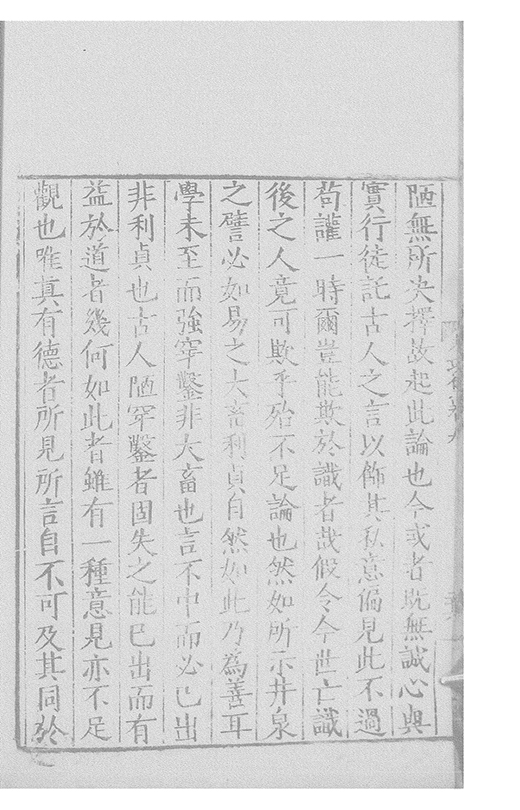 陋無所決擇故起此論也今或者既無誠心與
實行徒託古人之言以飾其私意偏見此不過
苟讙一時爾豈能欺於識者哉假令今世亡識
後之人竟可欺乎殆不足論也然如所示井泉
之譬必如易之大畜利貞自然如此乃為善耳
學未至而強穿鑿非大畜也言不中而必己出
非利貞也古人陋穿鑿者固失之能已出而有
益於道者幾何如此者雖有一種意見亦不足
觀也唯真有德者所見所言自不可及其同於